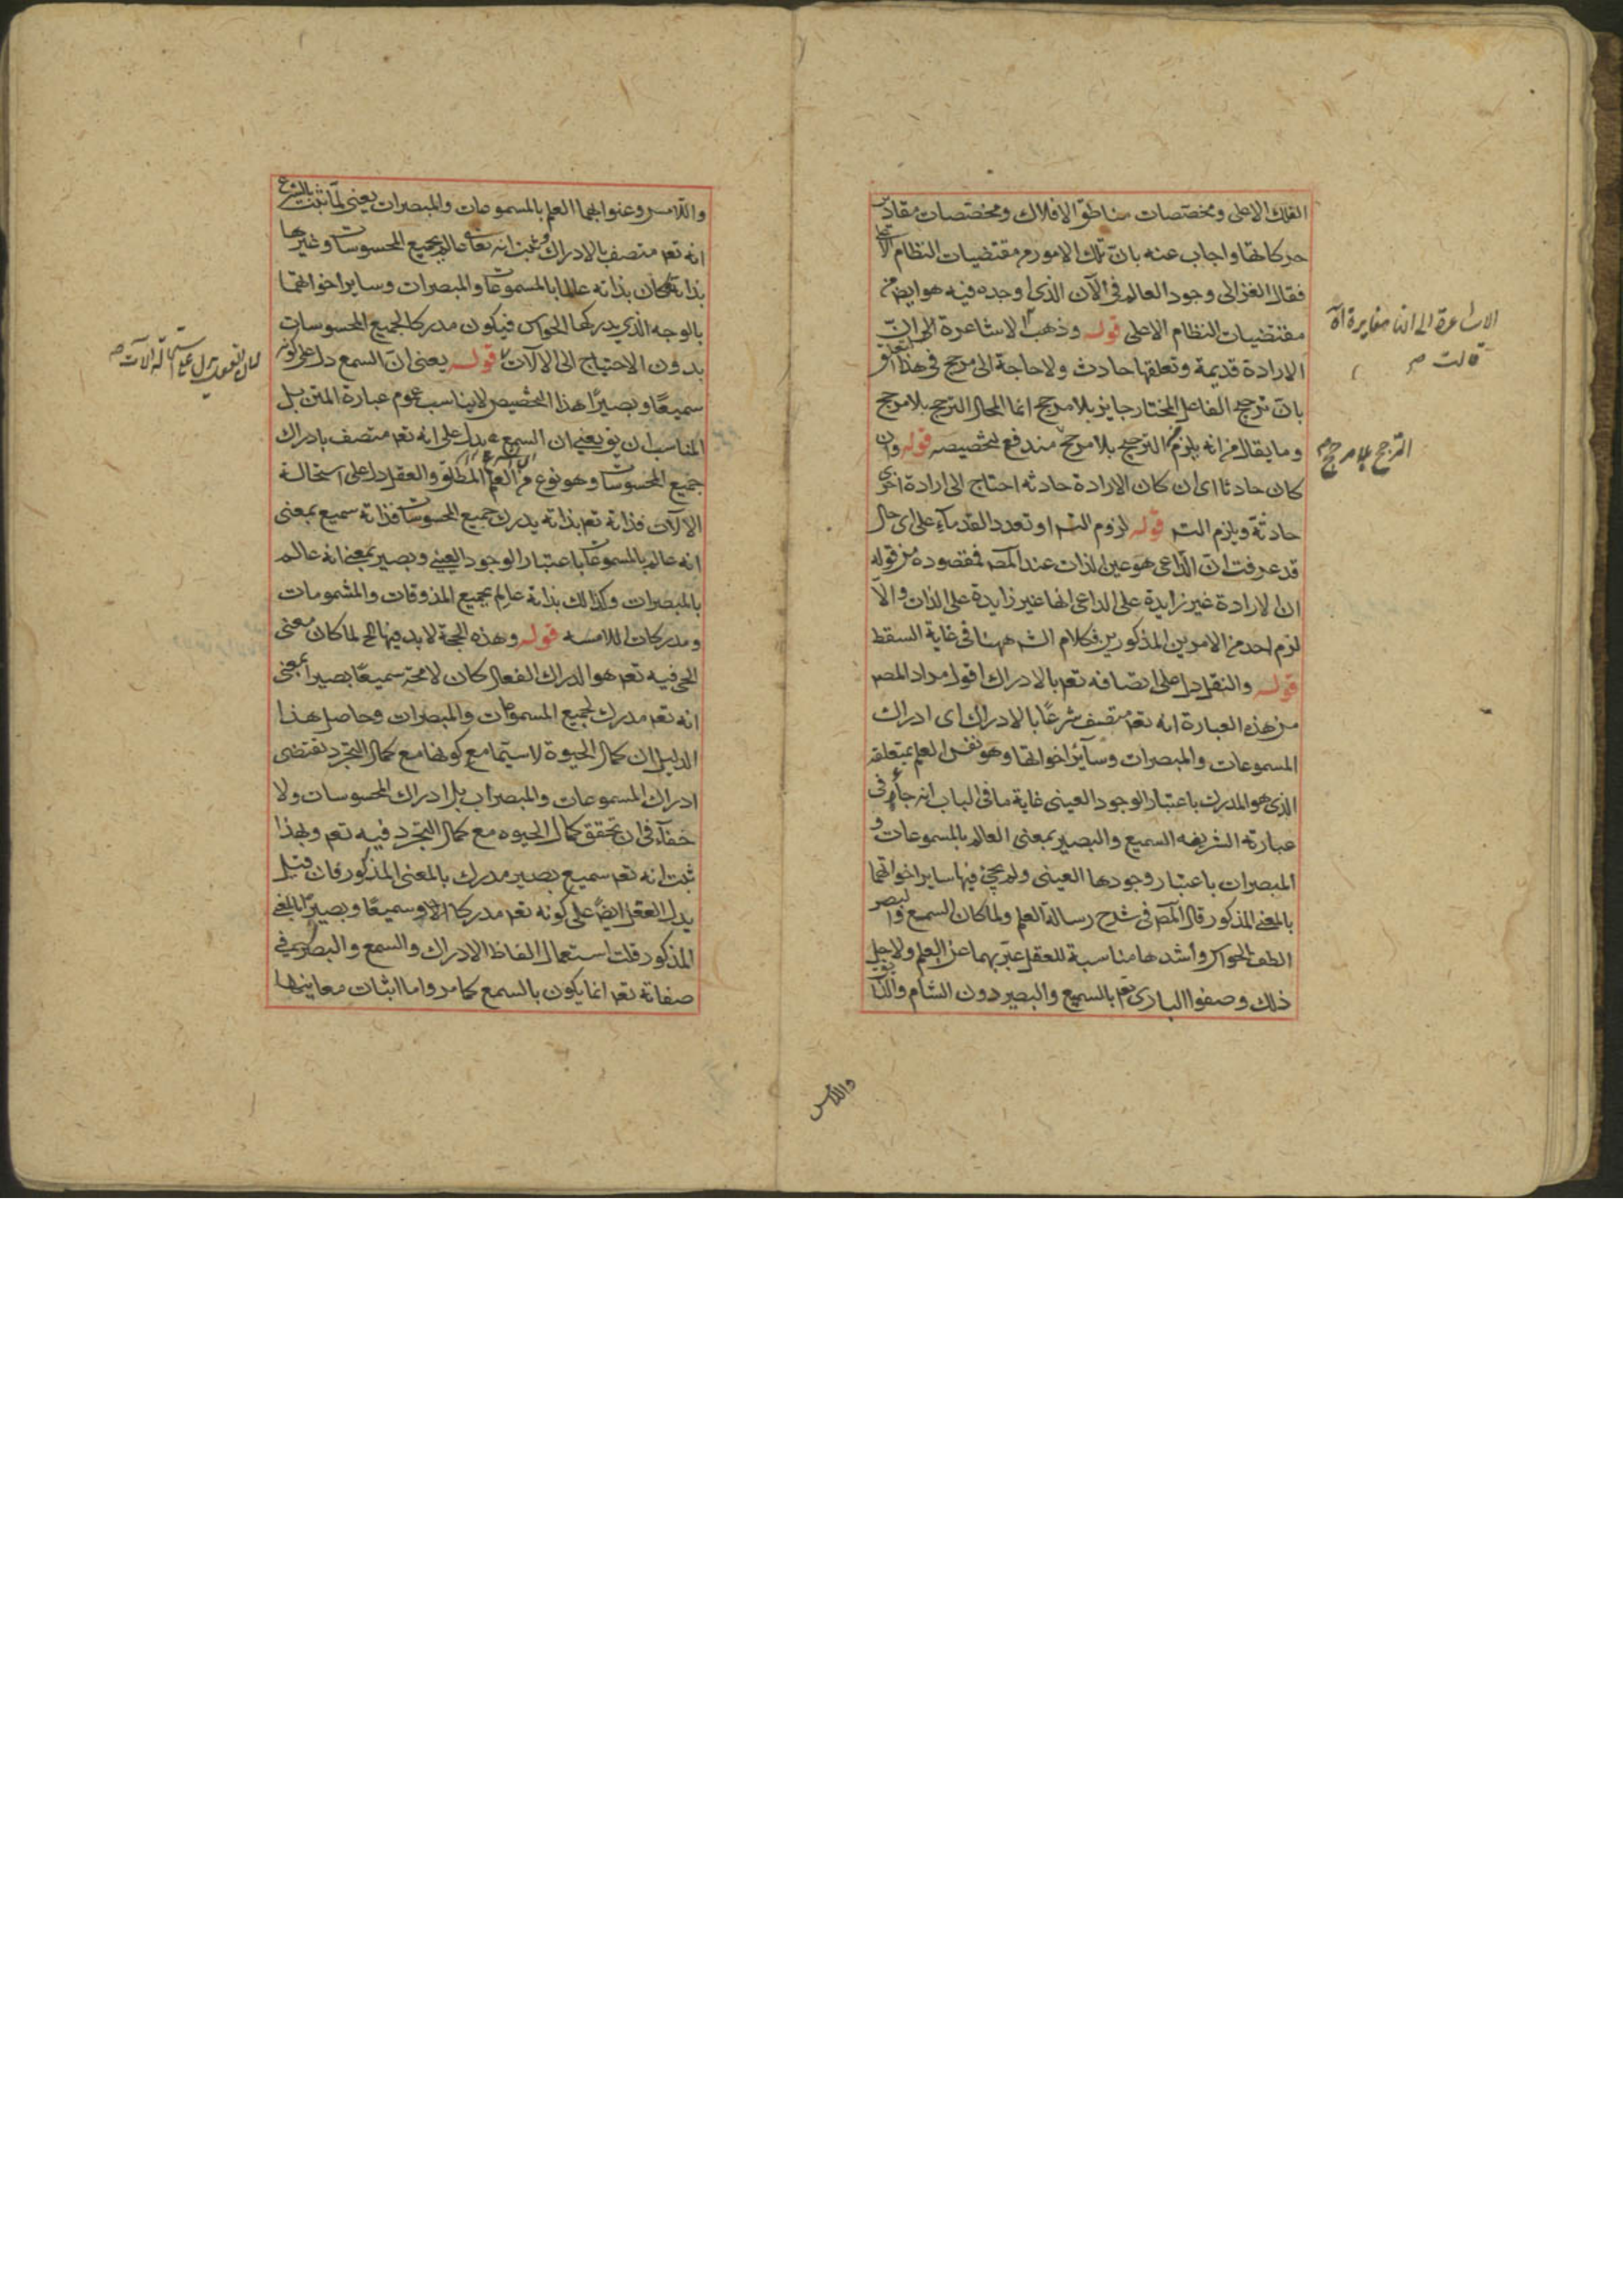 الفلك الاعلى ومخصّصات مناطق الافلاك ومخصّصات مقادير
حركاتها واجاب عنه بانّ تلك الامور من مقتضيات النظام الاعلى
فقال الغزالى وجود العالم فى الآن الذى اوجده فيه هو ايض من
مقتضيات النظام الاعلى قوله وذهب الاشاعرة الى انّ
الارادة قديمة وتعلقها حادث ولا حاجة الى مرجح فى هذا التعلق
بانّ ترجيح الفاعل المختار جايز بلا مرجح انما المحال الترجح بلا مرجح
وما يقال من انه يلزم الترجيح بلا مرجح مندفع لتخصيصه قوله وان
كان حادثا اى ان كان الارادة حادثه احتاج الى ارادة اخرى
حادثة ويلزم التس قوله لزوم التس او تعدد القدماء على اى حال
قد عرفت انّ الدّاعى هو عين الذات عند المصـ فمقصوده من قوله
ان الارادة غير زايدة على الداعى انها غير زايدة على الذات والّا
لزم احد من الامرين المذكورين فكلام الشـ ههنا فى غاية السقط
قوله والنقل دل على اتصافه تعـ بالادراك اقول مراد المصـ
من هذه العبارة انه تعـ متصف شرعًا بالادراك اى ادراك
المسموعات والمبصرات وساير اخواتها وهو نفس العلم بمتعلقه
الذى هو المدرك باعتبار الوجود العينى غاية ما فى الباب انه جاء فى
عبارته الشريفه السميع والبصير بمعنى العالم بالمسموعات و
المبصرات باعتبار وجودها العينى ولم يجئ فيها ساير اخواتهما
بالمعنى المذكور قال المصـ فى شرح رسالة العلم ولما كان السمع والبصر
الطف الحواس واشدها مناسبة للعقل عبّر بهما عن العلم ولاجل
ذلك وصفوا البارى تعـ بالسميع والبصير دون الشام والذايق
واللامس
الاشاعرة الى انها مغايرة
قالت صح
الترجح بلا مرجح
واللامس وعنوا بهما العلم بالمسموعات والمبصرات يعنى لمّا ثبت بالشرع
انه تعـ متصف بالادراك وثبت انه تعالى عالم بجميع المحسوسات وغيرها
بذاته فكان بذاته عالما بالمسموعات والمبصرات وساير اخواتهما
بالوجه الذى يدركها الحواس فيكون مدركا لجميع المحسوسات
بدون الاحتياج الى الآلات قوله يعنى انّ السمع دل على كونه
سميعًا وبصيرًا هذا التخصيص لا يناسب عموم عبارة المتن بل
المناسب ان يق يعنى ان السمع يدل على انه تعـ متصف بادراك
جميع المحسوسات وهو نوع من العلم المطلق والعقل دل على استحالة
الآلات فذاته تعـ بذاته يدرك جميع المحسوسات فذاته سميع بمعنى
انه عالم بالمسموعات باعتبار الوجود العينى وبصير بمعنى انه عالم
بالمبصرات وكذلك بذاته عالم بجميع المذوقات والمشمومات
ومدركات اللامسه قوله وهذه الحجة لا بد فيها الخ لما كان معنى
الحى فيه تعـ هو الدراك الفعال كان لا محة سميعًا بصيرا بمعنى
انه تعـ مدرك لجميع المسموعات والمبصرات وحاصل هذا
الدليل ان كمال الحيوة لا سيّما مع كونها مع كمال التجرد تقتضى
ادراك المسموعات والمبصرات بل ادراك المحسوسات ولا
خفاء فى ان تحقق كمال الحيوه مع كمال التجرد فيه تعـ وبهذا
ثبت انه تعـ سميع بصير مدرك بالمعنى المذكور فان قيل
يدل العقل ايضً على كونه تعـ مدركا وسميعًا وبصيرًا بالمعنى
المذكور قلت استعمال الفاظ الادراك والسمع والبصر فى
صفاته تعـ انما يكون بالسمع كما مر واما اثبات معانيها